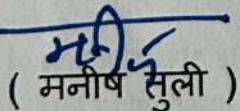 ( मनीष सुली )